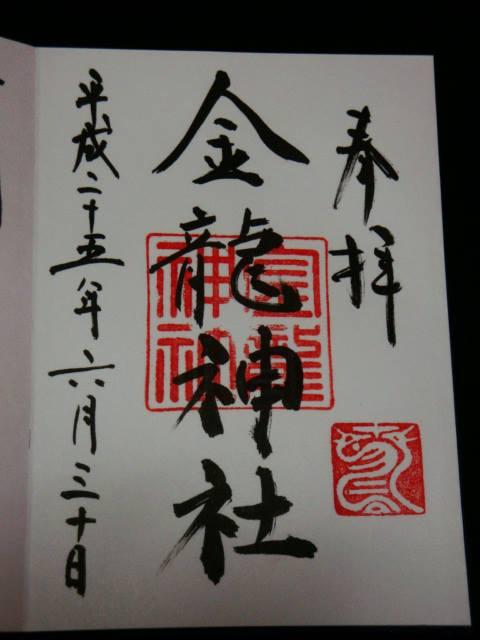 奉拝
金龍神社
平成二十五年六月三十日
金龍
神社